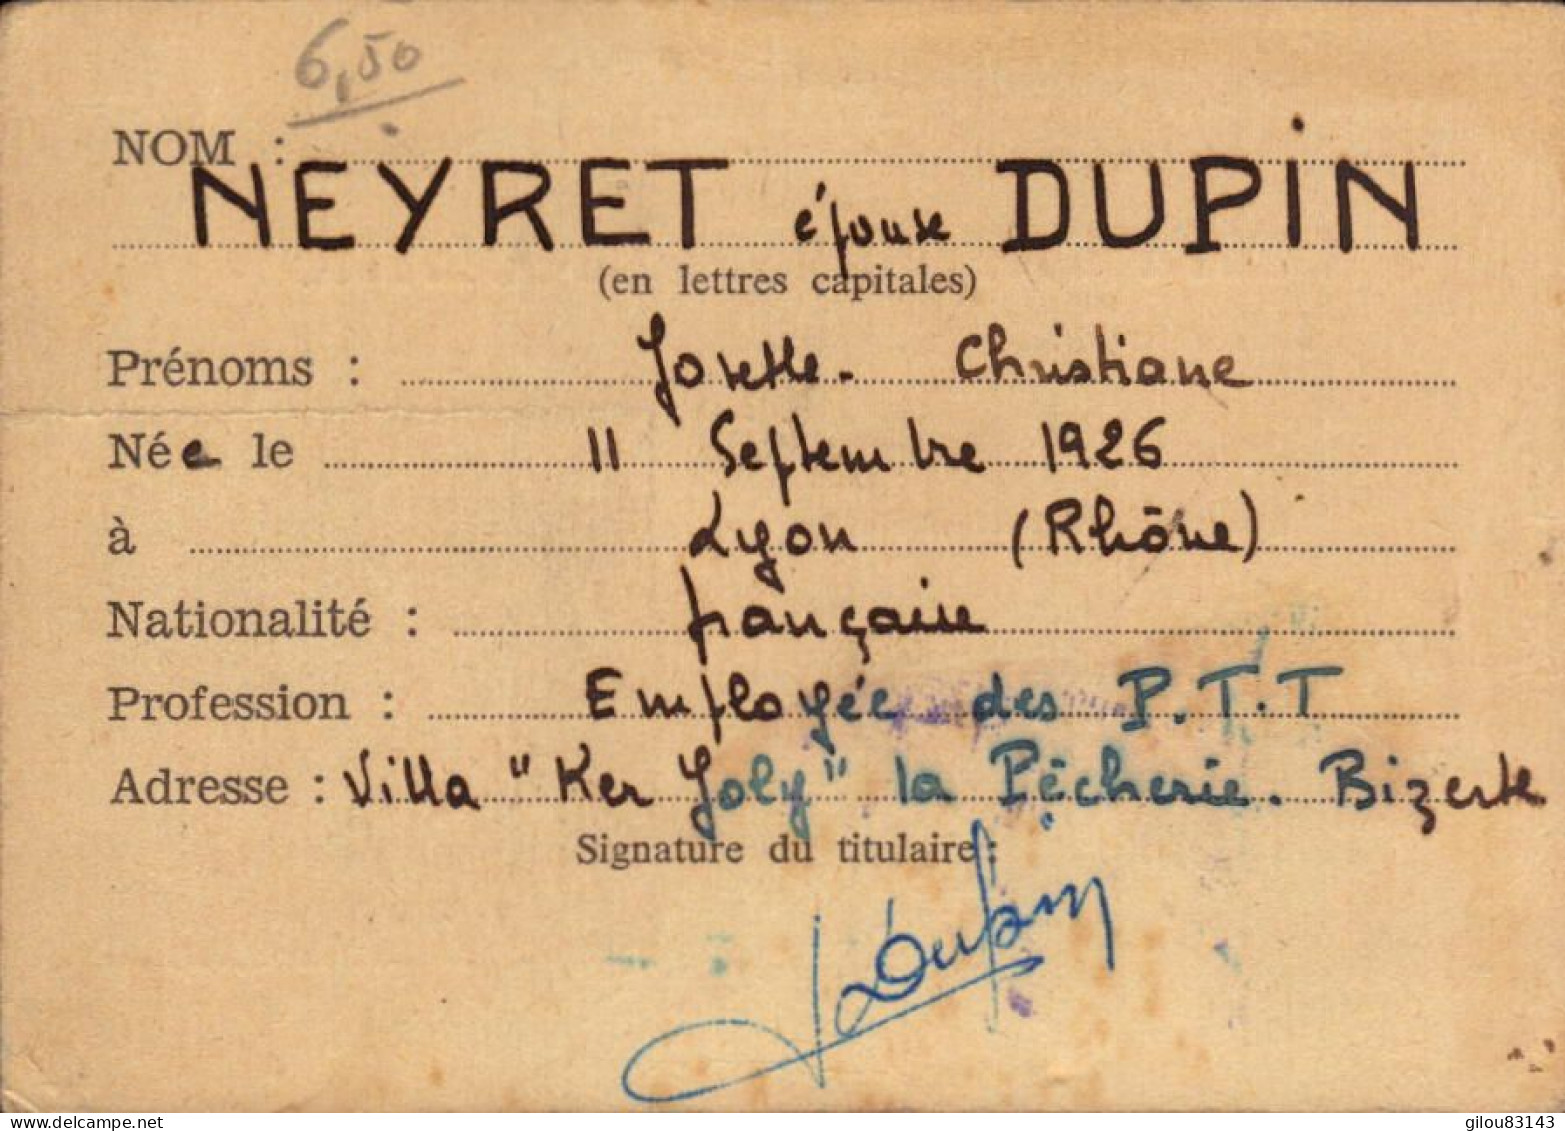 6,50
NOM :
NEYRET épouse DUPIN
(en lettres capitales)
Prénoms : Josette - Christiane
Née le 11 Septembre 1926
à Lyon (Rhône)
Nationalité : française
Profession : Employée des P.T.T
Adresse : Villa "Ker Joly" la Pêcherie. Bizerte
Signature du titulaire :
JDupin
delcampe.net
gilou83143